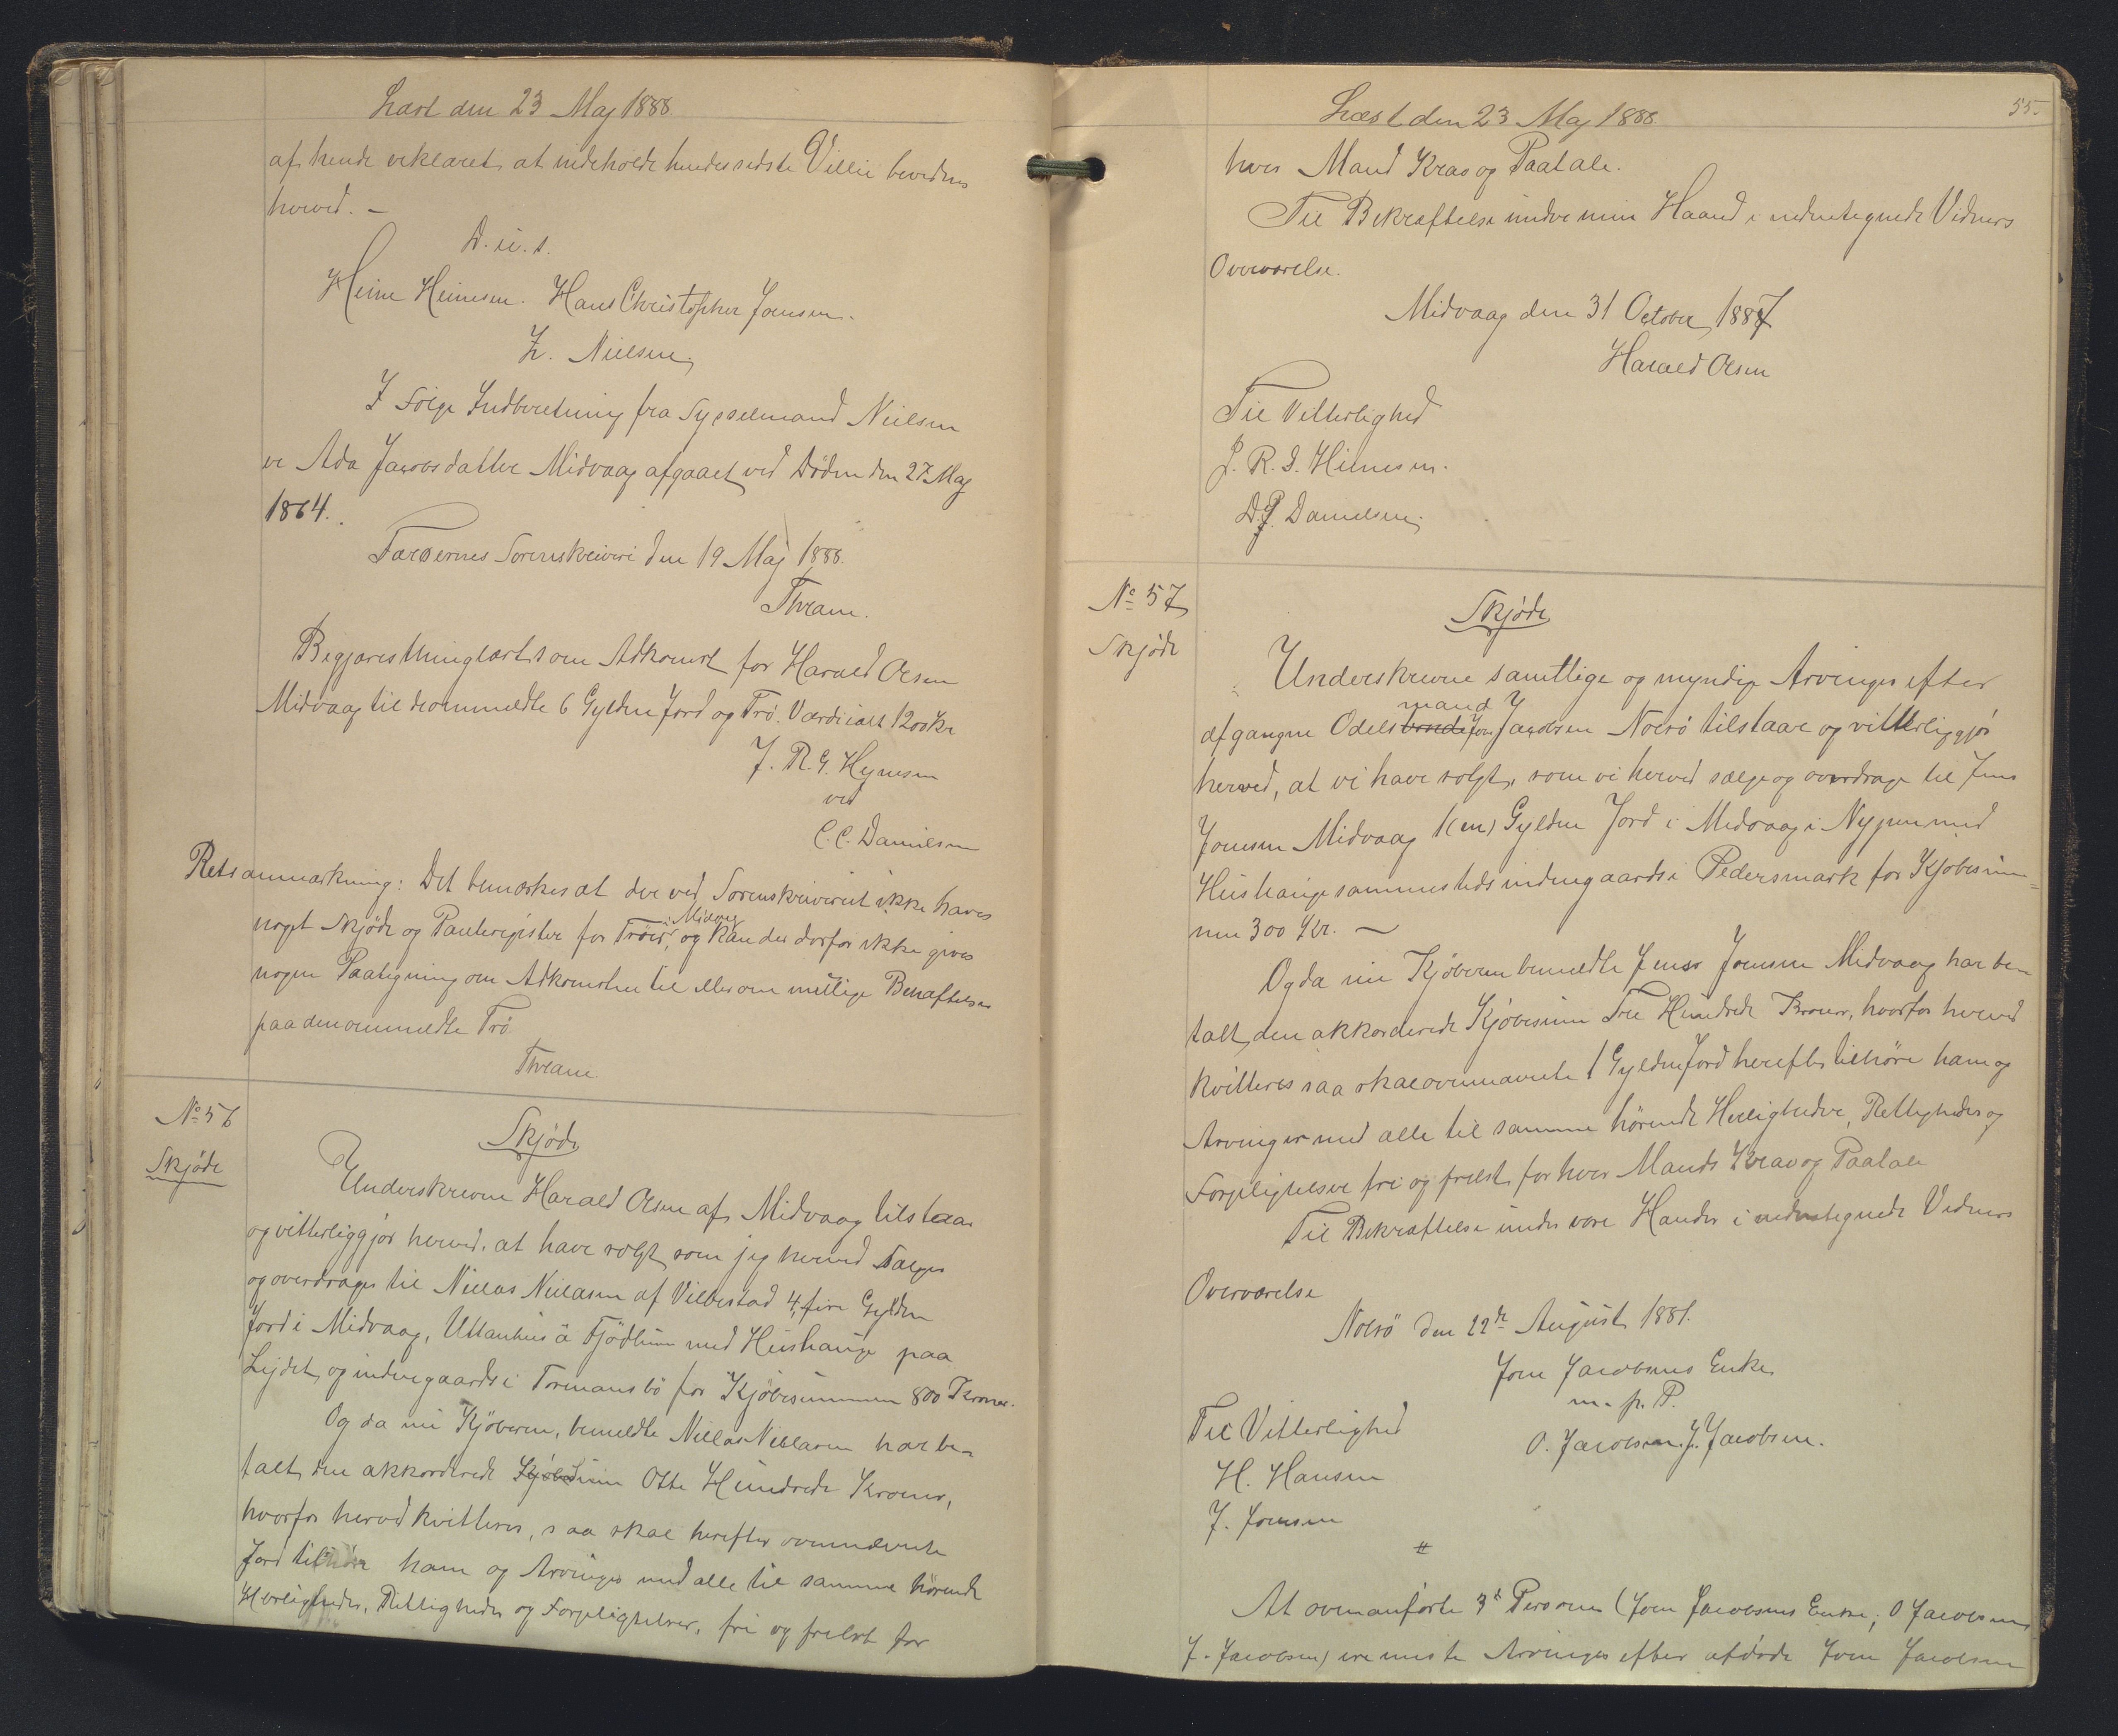 Læst den 23 Maj 1888.
af hende erklæret at indeholde hendes sidste Villie bevidnes
herved. –
D. u. s.
Heine Heinesen. Hans Christopher Joensen.
Z. Nielsen.
I Følge Indberetning fra Sysselmand Nielsen
er Ada Jacobsdatter Midvaag afgaaet ved Døden den 27 Maj
1864.
Færøernes Sorenskriveri den 19 Maj 1888.
Thrane.
Begjæres thinglæst som Adkomst for Harald Olsen
Midvaag til deommeldte 6 Gylden Jord og Trö. Værdi ialt 1200 Kr
J. R. G. Heinesen
ved
C. C. Danielsen
Retsanmærkning: Det bemærkes at der ved Sorenskriveriet ikke haves
noget Skjøde og Panteregister for Tröer i Midvaag, og kan der derfor ikke gives
nogen Paategning om Adkomsten til eller om mulige Behæftelser
paa den ommeldte Trö
Thrane.
No 56
Skjøde
Skjøde
Underskrevne Harald Olsen af Midvaag tilstaar
og vitterliggjør herved, at have solgt som jeg herved sælger
og overdrager til Niclas Niclasen af Velbestad 4, fire Gylden
Jord i Midvaag, Uttanhus á Fjödlum med Hushauge paa
Lejdet, og indengaards i Tormansbö for Kjøbesummen 800 Kroner.
Og da nu Kjøberen, bemeldte Niclas Niclasen har be-
talt den akkorderede Kjøbesum Otte Hundrede Kroner,
hvorfor herved kvitteres, saa skal herefter ovennævnte
Jord tilhøre ham og Arvinger med alle til samme hørende
Herligheder, Rettigheder og Forpligtelser, fri og frelst for
Læst den 23 Maj 1888.
55.
hver Mand Krav og Paatale.
Til Bekræftelse under min Haand i undertegnede Vidners
Overværelse.
Midvaag den 31 October 1887
Harald Olsen
Til Vitterlighed
J. R. G. Heinesen.
D. J. Danielsen.
No 57
Skjøde
Skjøde
Underskrevne samtlige og myndige Arvinger efter
afgangne Odels bonde mand Joen Jacobsen Nolsö tilstaar og vitterliggjør
herved, at vi have solgt, som vi herved sælge og overdrage til Jens
Joensen Midvaag 1 (en) Gylden Jord i Midvaag i Nyjunum med
Hushauge sammesteds indengaards i Pedersmark for Kjøbesum-
men 300 Kr. –
Og da nu Kjøberen bemeldte Jens Joensen Midvaag har be-
talt den akkorderede Kjøbesum Tre Hundrede Kroner, hvorfor herved
kvitteres saa skal ovennævnte 1 Gylden Jord herefter tilhøre ham og
Arvinger med alle til samme hørende Herligheder, Rettigheder og
Forpligtelser fri og frelst for hver Mands Krav og Paatale
Til Bekræftelse under vore Hænder i undertegnede Vidners
Overværelse
Nolsö den 22de August 1881.
Joen Jacobsens Enke
m. f. P.
O. Jacobsen. J. Jacobsen.
Til Vitterlighed
H. Hansen
J. Joensen
#
At ovenanførte 3de Personer (Joen Jacobsens Enke, O Jacobsen
J. Jacobsen) ere eneste Arvinger efter afdøde Joen Jacobsen